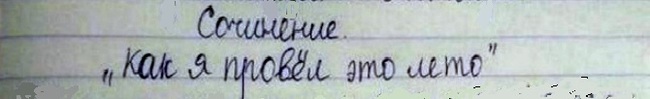 Сочинение.
„Как я провёл это лето"